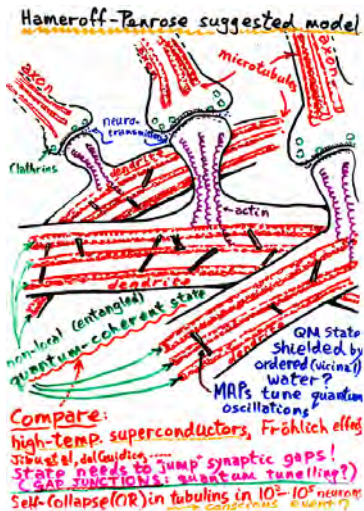 Hameroff-Penrose suggested model
axon
microtubules
axon
neuro-
transmitter
Clathrins
dendrite
actin
dendrite
dendrite
non-local (entangled)
quantum-coherent state
QM State
shielded by
ordered (vicinal)
water?
MAPs tune quantum
oscillations
Compare:
high-temp. superconductors, Fröhlich effect
Jibu et al, del Guidice,....
State needs to "jump" synaptic gaps!
(GAP JUNCTIONS: quantum tunelling?)
Self-Collapse (OR) in tubulins in 10³-10⁵ neurons
→ conscious event?